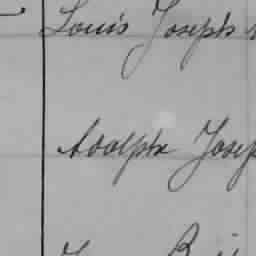 Louis Joseph
Adolphe Josep